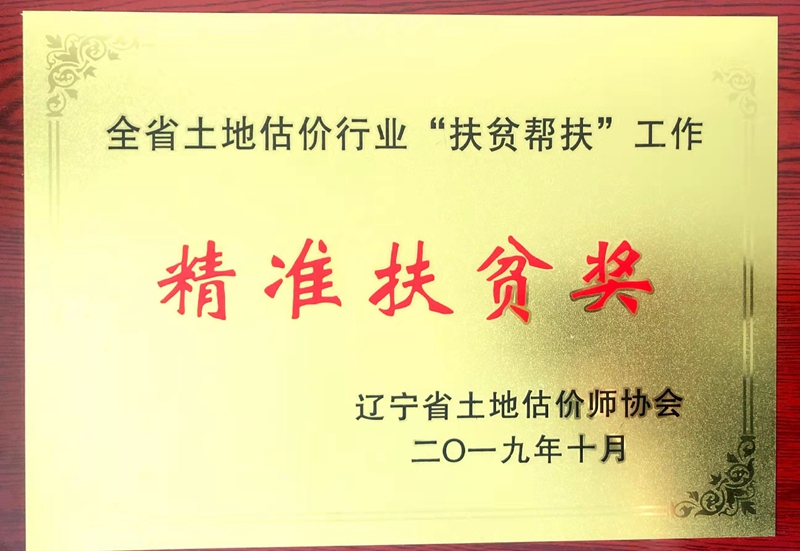 全省土地估价行业“扶贫帮扶”工作
精准扶贫奖
辽宁省土地估价师协会
二〇一九年十月